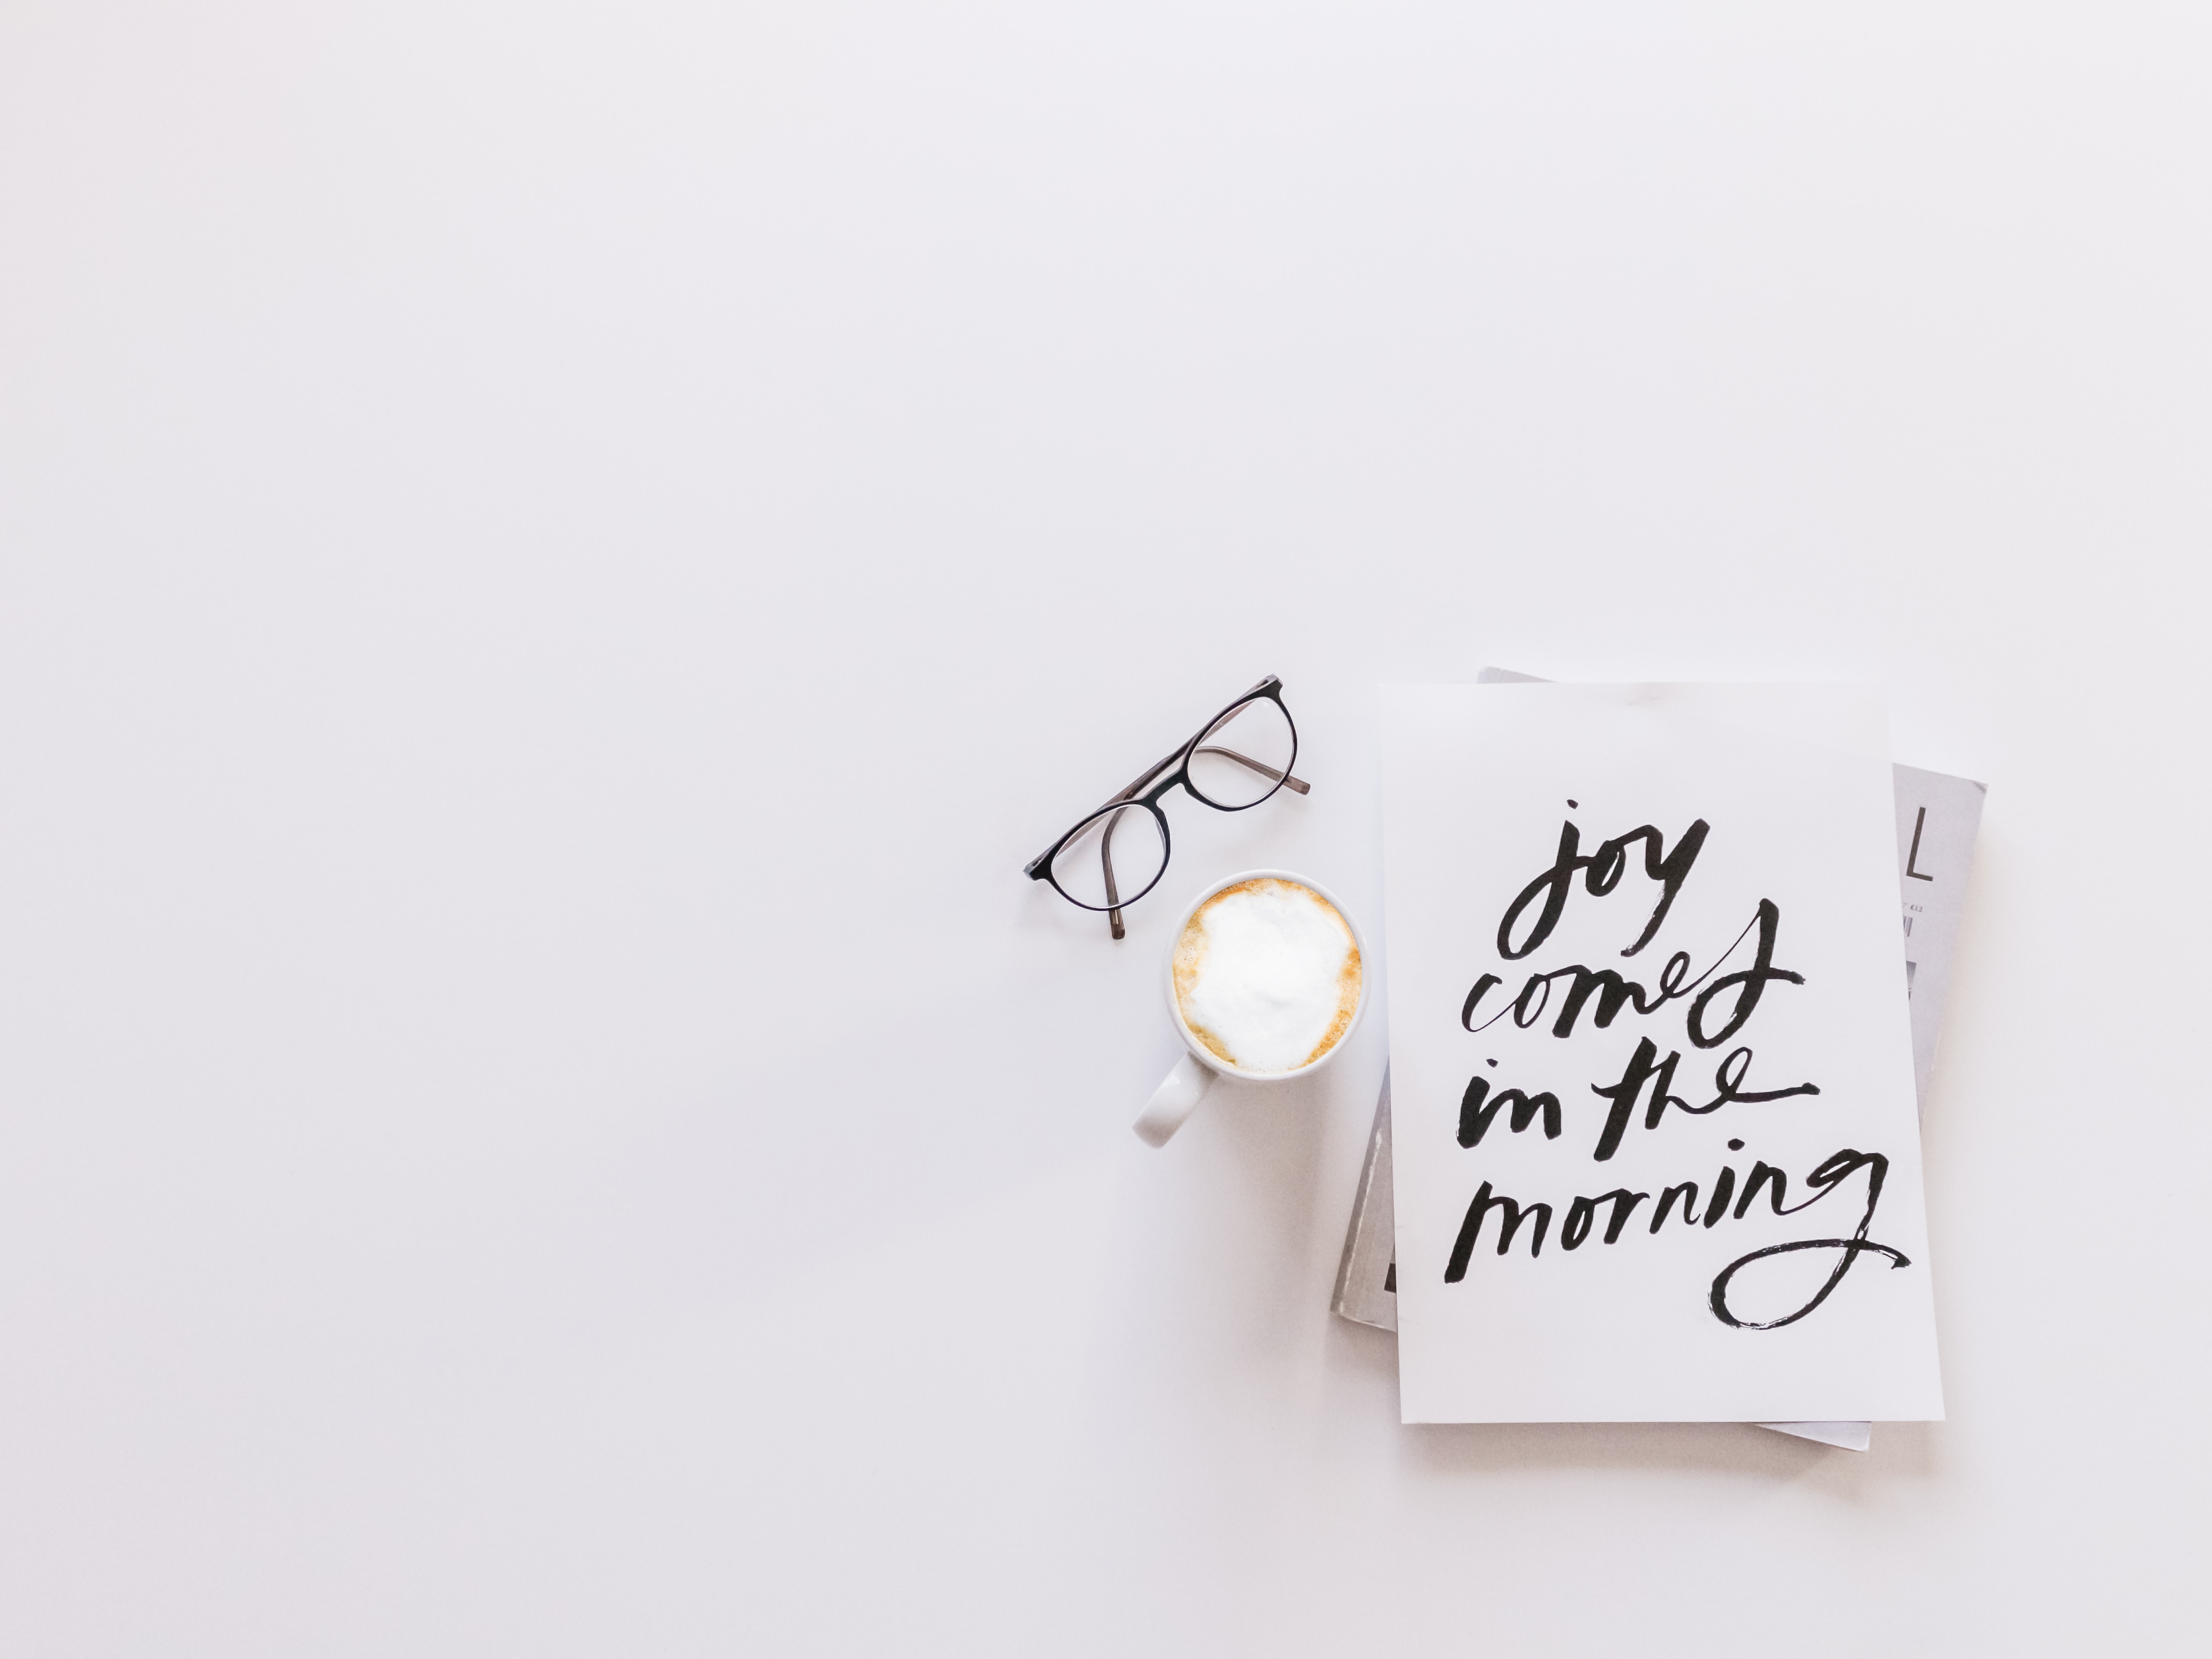 joy
comes
in the
morning
L